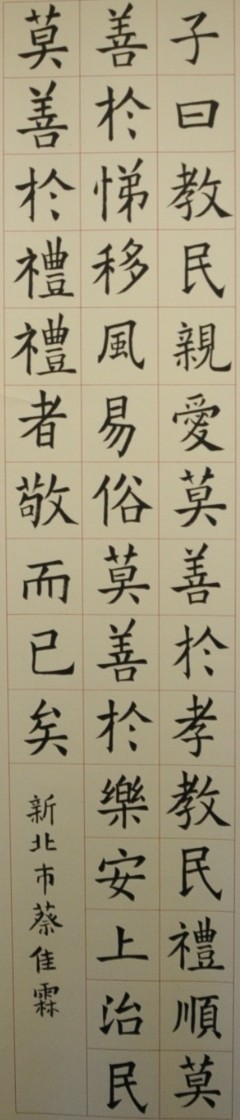 子曰教民親愛莫善於孝教民禮順莫
善於悌移風易俗莫善於樂安上治民
莫善於禮禮者敬而已矣
新北市蔡佳霖